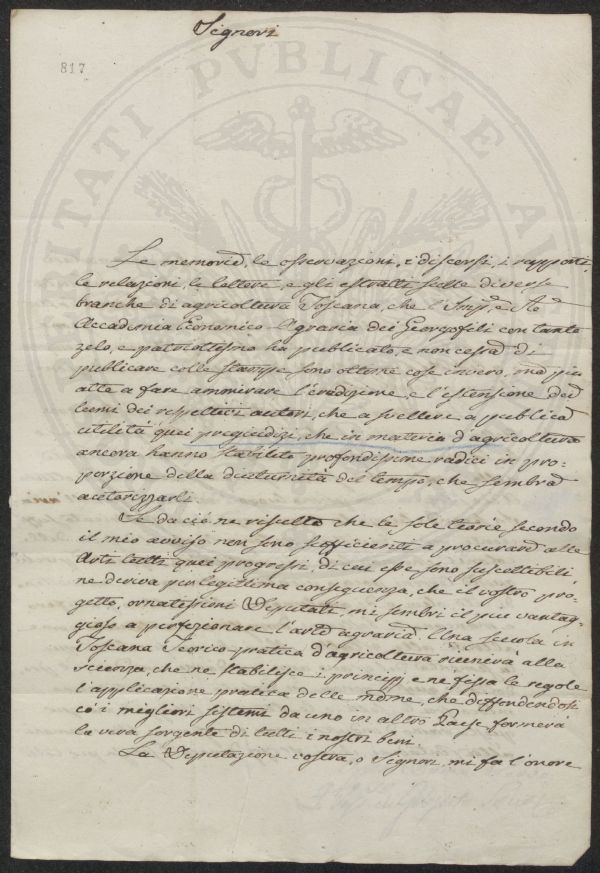 Signori
817
Le memorie, le osservazioni, i discorsi, i rapporti,
le relazioni, le lettere, e gli estratti sulle diverse
branche di agricoltura Toscana, che l'Imp. e
Accademia Economico-Agraria dei Georgofili con tanto
zelo, e patriottismo ha publicato, e non cessa di
publicare colle stampe sono ottime cose invero, ma più
atte a fare ammirare l'erudizione, e l'estensione dei
lumi dei respettivi autori, che a svellere a publica
utilità quei pregiudizi, che in materia d'agricoltura
ancora hanno stabilito profondissime radici in pro-
porzione della diuturnità del tempo, che sembra
autorizzarli.
Se da ciò ne risulta che le sole teorie secondo
il mio avviso non sono sufficienti a procurare alle
Arti tutti quei progressi, di cui esse sono suscettibili
ne deriva per legittima conseguenza, che il vostro pro-
getto, ornatissimi Deputati mi sembri il più vantag-
gioso a perfezionare l'arte agraria. Una scuola in
Toscana Teorico-pratica d'agricoltura riunirà alla
scienza, che ne stabilisce i principj e ne fissa le regole
l'applicazione pratica delle medme, che diffondendosi
così i migliori sistemi da uno in altro Paese formerà
la vera sorgente di tutti i nostri beni.
La Deputazione vostra, o Signori, mi fa l'onore
PUBLICAE